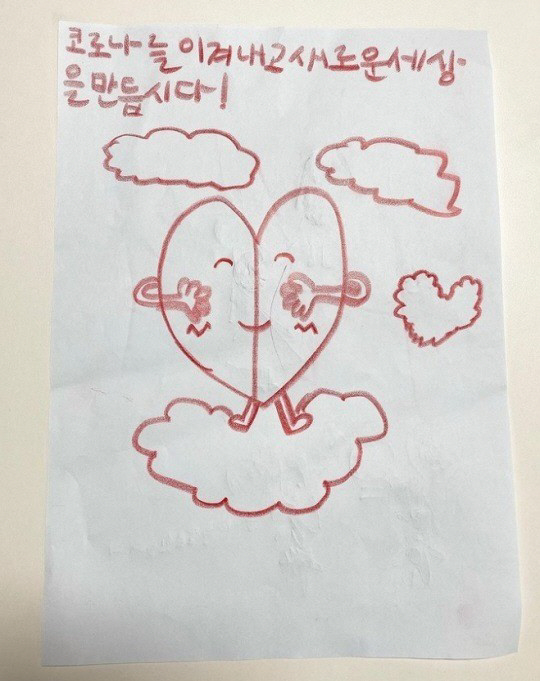 코로나를 이겨내고 새로운세상
을만듭시다!